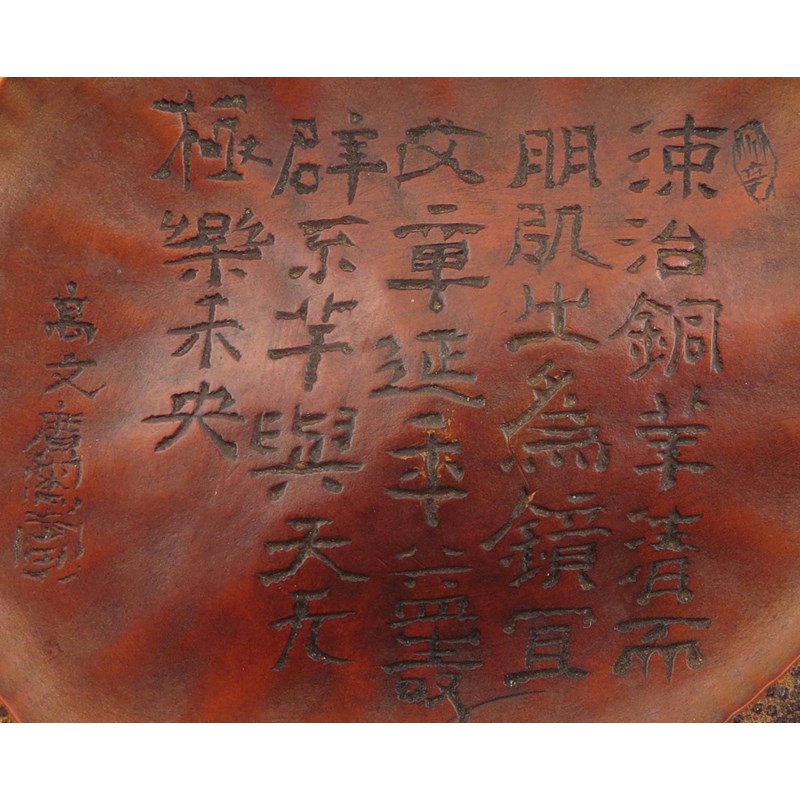 涑治銅華清而
朋肌之為鏡宜
文章延年益壽
辟不羊與天无
極樂未央
高文